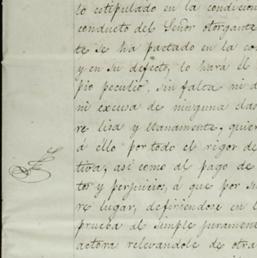 lo estipulado en la condicion
conducto del Señor otorgante
te se ha pactado en la co
y en su defecto, lo hará el
pio peculio, sin falta ni d
ni excusa de ninguna clas
re lisa y llanamente, quier
á ello por todo el rigor de
tiva; asi como al pago de
tos y perjuicios, á que por su
re lugar, defiriendose en l
prueba al simple jurament
actora relevandole de otra